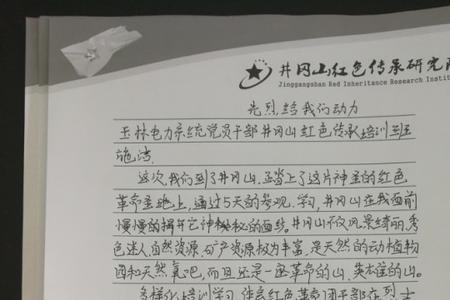 井冈山红色传承研究院
Jinggangshan Red Inheritance Research Instit
先烈给我们动力
玉林电力系统党员干部井冈山红色传承培训班
施洁
这次,我们到了井冈山,踏上了这片神圣的红色
革命圣地上,通过5天的参观、学习,井冈山在我面前
慢慢的揭开它神秘的面纱。井冈山不仅风景绮丽,秀
色迷人,自然资源、矿产资源极为丰富,是天然的动植物
园和天然氧吧,而且还是一座革命的山、英雄的山。
多样化培训学习